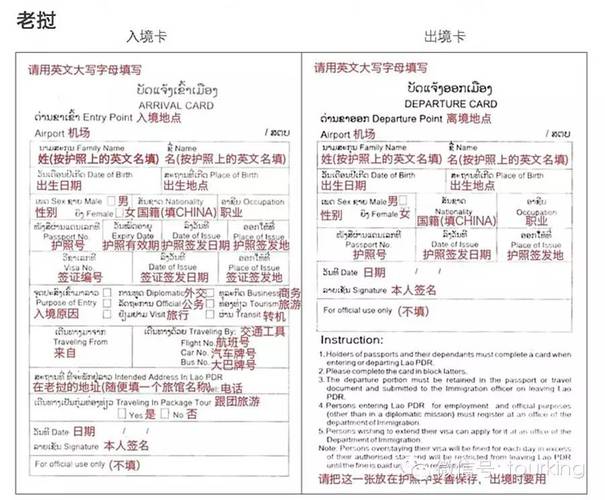 老挝
入境卡
请用英文大写字母填写
ບັດແຈ້ງເຂົ້າເມືອງ
ARRIVAL CARD
ດ່ານຂາເຂົ້າ Entry Point 入境地点
Airport 机场 / ສຕຍ
ນາມສະກຸນ Family Name ຊື່ Name
姓(按护照上的英文名填) 名(按护照上的英文名填)
ວັນເດືອນປີເກີດ Date of Birth ສະຖານທີ່ເກີດ Place of Birth
出生日期 出生地点
ເພດ Sex ຊາຍ Male 男 ສັນຊາດ Nationality ອາຊີບ Occupation
性别 ຍິງ Female 女 国籍(填CHINA) 职业
ໜັງສືຜ່ານແດນເລກທີ ວັນໝົດອາຍຸ ລົງວັນທີ ອອກໃຫ້ທີ່
Passport No Expiry Date Date of Issue Place of Issue
护照号 护照有效期 护照签发日期 护照签发地
ວີຊາເລກທີ ລົງວັນທີ ອອກໃຫ້ທີ່
Visa No. Date of Issue Place of Issue
签证编号 签证签发日期 签证签发地
ຈຸດປະສົງເຂົ້າມາລາວ ການທູດ Diplomatic 外交 ທຸລະກິດ Business 商务
Purpose of Entry ລັດຖະການ Official 公务 ທ່ອງທ່ຽວ Tourism 旅游
入境原因 ຢ້ຽມຢາມ Visit 旅行 ຜ່ານ Transit 转机
ເດີນທາງມາຈາກ ເດີນທາງດ້ວຍ Traveling By: 交通工具
Traveling From Flight No. 航班号
来自 Car No. 汽车牌号
Bus No. 大巴牌号
ສະຖານທີ່ ທີ່ຈະພັກຢູ່ລາວ Intended Address In Lao PDR
在老挝的地址(随便填一个旅馆名称) Tel: 电话
ເດີນທາງເປັນກຸ່ມທ່ອງທ່ຽວ Traveling In Package Tour 跟团旅游
Yes 是 No 否
ວັນທີ Date 日期 / /
ລາຍເຊັນ Signature 本人签名
For official use only (不填)
出境卡
请用英文大写字母填写
ບັດແຈ້ງອອກເມືອງ
DEPARTURE CARD
ດ່ານຂາອອກ Departure Point 离境地点
Airport 机场 / ສຕຍ
ນາມສະກຸນ Family Name ຊື່ Name
姓(按护照上的英文名填) 名(按护照上的英文名填)
ວັນເດືອນປີເກີດ Date of Birth ສະຖານທີ່ເກີດ Place of Birth
出生日期 出生地点
ເພດ Sex ຊາຍ Male 男 ສັນຊາດ Nationality ອາຊີບ Occupation
性别 ຍິງ Female 女 国籍(填CHINA) 职业
ໜັງສືຜ່ານແດນເລກທີ ລົງວັນທີ ອອກໃຫ້ທີ່
Passport No. Date of Issue Place of Issue
护照号 护照签发日期 护照签发地
ວັນທີ Date 日期 / /
ລາຍເຊັນ Signature 本人签名
For official use only (不填)
Instruction:
1. Holders of passports and their dependants must complete a card when
entering or departing Lao PDR.
2. Please complete the card in block latters.
3. The departure portion must be retained in the passport or travel
document and submitted to the Immigration officer on leaving Lao
PDR.
4. Persons entering Lao PDR for employment and official purposes
(other than in a diplomatic mission) must register at an office of the
department of Immigration.
5. Persons wishing to extend their visa can apply for it at an office of the
Department of Immigration.
Note: Persons overstaying their visa will be fined for each day in excess
of their authorised stay and will be restricted from leaving Lao PDR
until the fine is paid
微信号: tourking
请把这一张放在护照中妥善保存，出境时要用